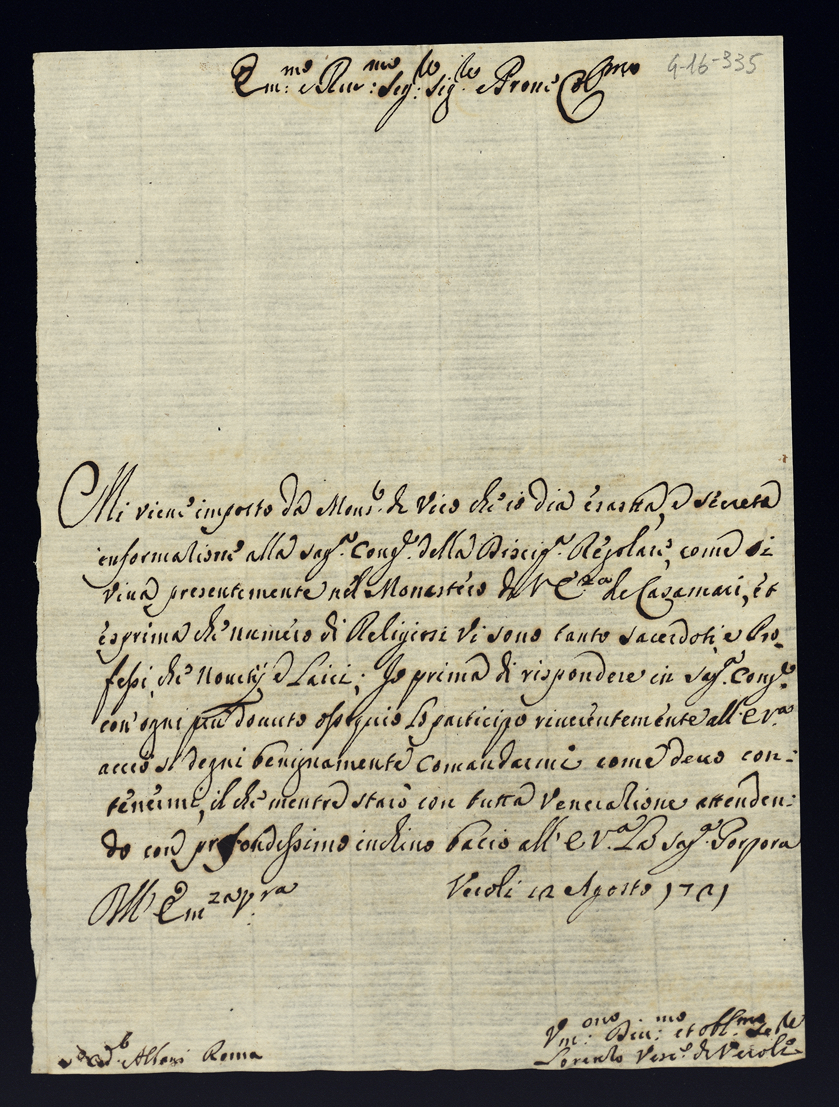 Em:mo e Rev:mo Sig:re Sig:re e Prone Colmo
G-16-335
Mi viene imposto da Monsr. de Vico che io dia esatta, e secreta
informatione alla sagr. Congr. della Discipa. Regolare, come si
viva presentemente nel Monastero di V Eza. di Casamari, et
esprima che numero di Religiosi vi sono tanto sacerdoti e Pro-
fessi, che Novitij e Laici; Io prima di rispondere in sagr. Congne.
con ogni più dovuto ossequio lo participo riverentemente all' E Vra.
acciò si degni benignamente comandarmi come devo con-:
tenermi, il che mentre starò con tutta veneratione attenden:
do con profondissimo inchino bacio all' E Vra. La sagra. Porpora
All' Emza vra
Veroli 12 Agosto 1721
Albani Roma
Vm:ono Dev:mo et obl:mo Sere
Lorenzo Vesco. di Veroli